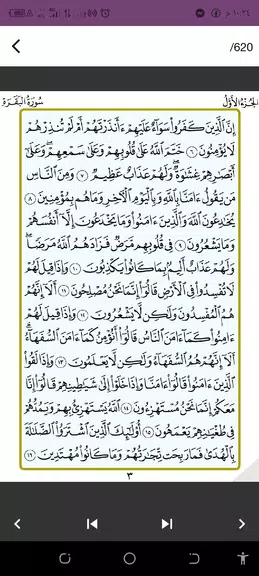 ١٠:٢٤ م
/620
الجزء الأول
سورة البقرة
إِنَّ ٱلَّذِينَ كَفَرُوا۟ سَوَآءٌ عَلَيْهِمْ ءَأَنذَرْتَهُمْ أَمْ لَمْ تُنذِرْهُمْ
لَا يُؤْمِنُونَ ٦ خَتَمَ ٱللَّهُ عَلَىٰ قُلُوبِهِمْ وَعَلَىٰ سَمْعِهِمْ ۖ وَعَلَىٰٓ
أَبْصَٰرِهِمْ غِشَٰوَةٌ ۖ وَلَهُمْ عَذَابٌ عَظِيمٌ ٧ وَمِنَ ٱلنَّاسِ
مَن يَقُولُ ءَامَنَّا بِٱللَّهِ وَبِٱلْيَوْمِ ٱلْءَاخِرِ وَمَا هُم بِمُؤْمِنِينَ ٨
يُخَٰدِعُونَ ٱللَّهَ وَٱلَّذِينَ ءَامَنُوا۟ وَمَا يَخْدَعُونَ إِلَّآ أَنفُسَهُمْ
وَمَا يَشْعُرُونَ ٩ فِى قُلُوبِهِم مَّرَضٌ فَزَادَهُمُ ٱللَّهُ مَرَضًا ۖ
وَلَهُمْ عَذَابٌ أَلِيمٌۢ بِمَا كَانُوا۟ يَكْذِبُونَ ١٠ وَإِذَا قِيلَ لَهُمْ
لَا تُفْسِدُوا۟ فِى ٱلْأَرْضِ قَالُوٓا۟ إِنَّمَا نَحْنُ مُصْلِحُونَ ١١ أَلَآ إِنَّهُمْ
هُمُ ٱلْمُفْسِدُونَ وَلَٰكِن لَّا يَشْعُرُونَ ١٢ وَإِذَا قِيلَ لَهُمْ
ءَامِنُوا۟ كَمَآ ءَامَنَ ٱلنَّاسُ قَالُوٓا۟ أَنُؤْمِنُ كَمَآ ءَامَنَ ٱلسُّفَهَآءُ ۗ
أَلَآ إِنَّهُمْ هُمُ ٱلسُّفَهَآءُ وَلَٰكِن لَّا يَعْلَمُونَ ١٣ وَإِذَا لَقُوا۟
ٱلَّذِينَ ءَامَنُوا۟ قَالُوٓا۟ ءَامَنَّا وَإِذَا خَلَوْا۟ إِلَىٰ شَيَٰطِينِهِمْ قَالُوٓا۟ إِنَّا
مَعَكُمْ إِنَّمَا نَحْنُ مُسْتَهْزِءُونَ ١٤ ٱللَّهُ يَسْتَهْزِئُ بِهِمْ وَيَمُدُّهُمْ
فِى طُغْيَٰنِهِمْ يَعْمَهُونَ ١٥ أُو۟لَٰٓئِكَ ٱلَّذِينَ ٱشْتَرَوُا۟ ٱلضَّلَٰلَةَ
بِٱلْهُدَىٰ فَمَا رَبِحَت تِّجَٰرَتُهُمْ وَمَا كَانُوا۟ مُهْتَدِينَ ١٦
٣